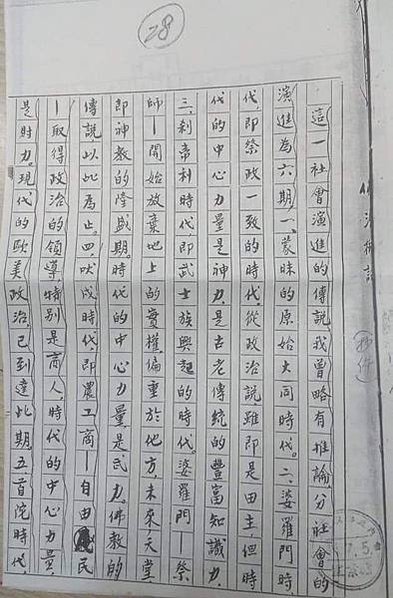 28
這一社會演進的傳說我曾略有推論分社會的
演進為六期一、蒙昧的原始大同時代。二、婆羅門時
代，即祭政一致的時代。從政治說，雖即是田主，但時
代的中心力量是神力，是古老傳統的豐富知識力。
三、剎帝利時代即武士族興起的時代。婆羅門—祭
師—開始放棄地上的實權偏重於他方，未來天堂
即神教的隆盛期。時代的中心力量，是武力。佛教的
傳說以此為止。四、吠戍時代，即農工商—自由民
—取得政治的領導特別是商人，時代的中心力量，
是財力。現代的歐美政治，已到達此期。五首陀時代